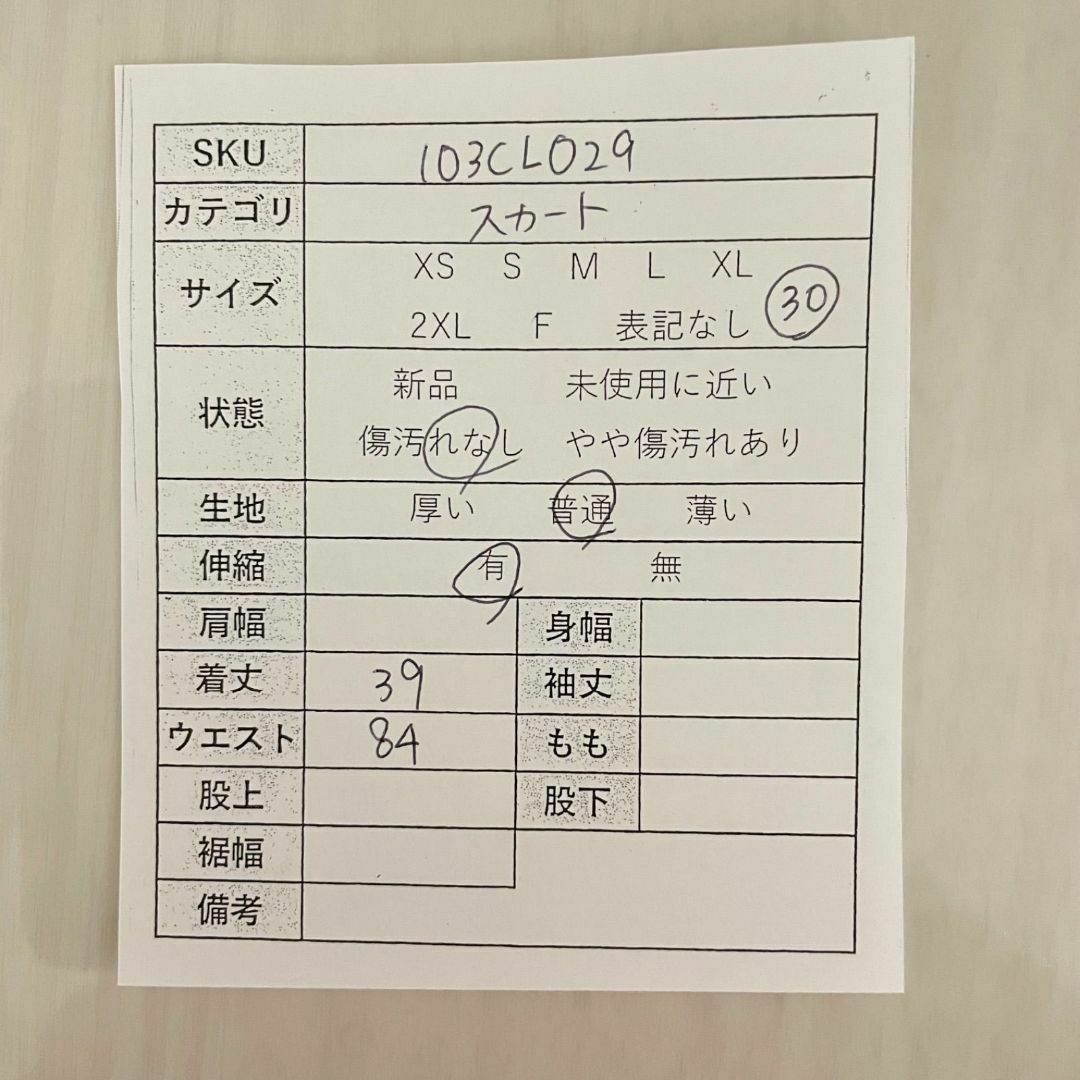 SKU 103CL029
カテゴリ スカート
サイズ XS S M L XL
2XL F 表記なし 30
状態 新品 未使用に近い
傷汚れなし やや傷汚れあり
生地 厚い 普通 薄い
伸縮 有 無
肩幅 身幅
着丈 39 袖丈
ウエスト 84 もも
股上 股下
裾幅
備考